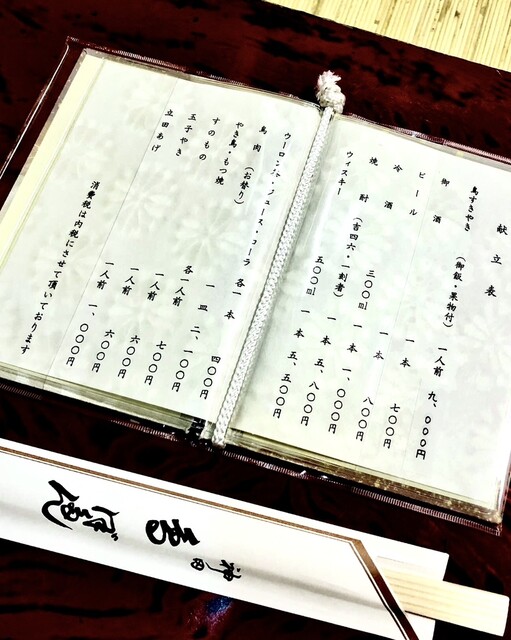 献立表
鳥すきやき (御飯・果物付) 一人前 九、〇〇〇円
御酒 一本 七〇〇円
ビール 一本 八〇〇円
冷酒 三〇〇ml 一本 一、〇〇〇円
焼酎 (吉四六・一刻者) 一本 五、八〇〇円
ウイスキー 五〇〇ml 一本 五、五〇〇円
ウーロン茶・ジュース・コーラ 各一本 四〇〇円
鳥肉 (お替り) 一皿 二、一〇〇円
やき鳥・もつ焼 各一人前 七〇〇円
すのもの 一人前 六〇〇円
玉子やき 一人前 六〇〇円
立田あげ 一人前 一、〇〇〇円
消費税は内税にさせて頂いております
神田
ぼたん